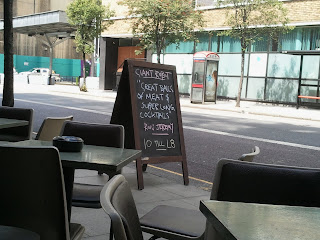 GIANT ROBOT
GREAT BALLS
OF MEAT &
SUPER LONG
COCKTAILS
10 TILL LB